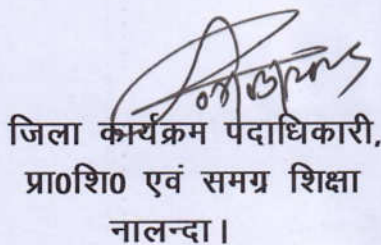 जिला कार्यक्रम पदाधिकारी,
प्रा0शि0 एवं समग्र शिक्षा
नालन्दा।